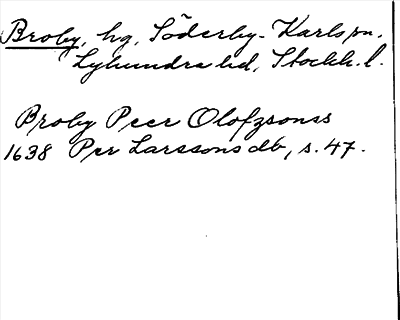 Broby, hg, Söderby-Karls sn,
Lyhundra hd, Stockh. l.
Broby Peer Olofzsonss
1638 Per Larssons db, s. 47.